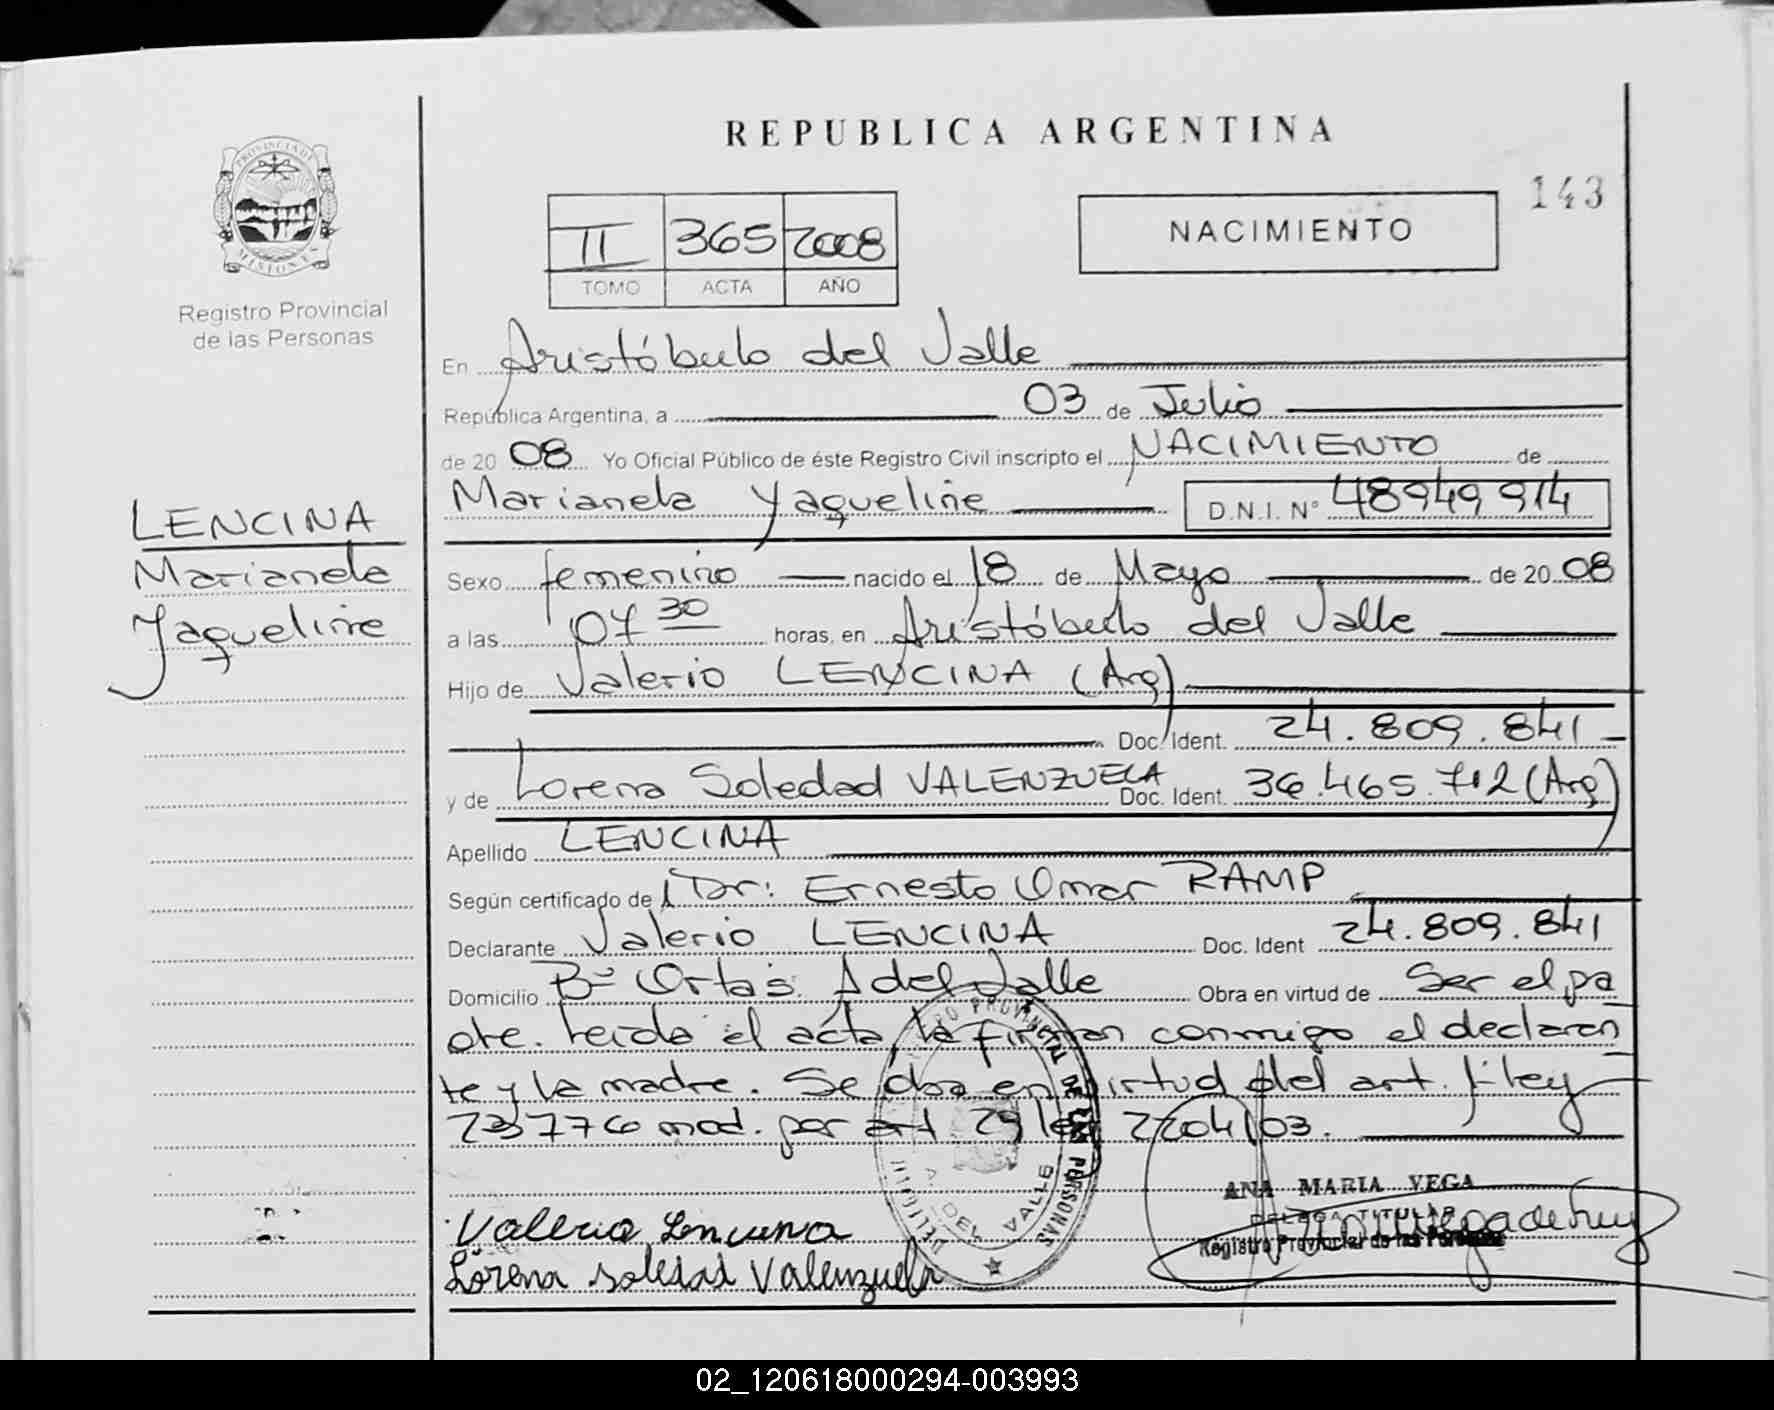 REPUBLICA ARGENTINA
143
PROVINCIA DE
MISIONES
Registro Provincial
de las Personas
II 365 2008
TOMO ACTA AÑO
NACIMIENTO
En Aristóbulo del Valle
República Argentina, a 03 de Julio
de 20 08 Yo Oficial Público de éste Registro Civil inscripto el NACIMIENTO de
Marianela Yaqueline D.N.I. N° 48949914
LENCINA
Marianela
Yaqueline
Sexo femenino nacido el 18 de Mayo de 20 08
a las 07 30 horas, en Aristóbulo del Valle
Hijo de Valerio LENCINA (Arg)
Doc. Ident. 24.809.841
y de Lorena Soledad VALENZUELA Doc. Ident. 36.465.712 (Arg)
Apellido LENCINA
Según certificado de Dr: Ernesto Omar RAMP
Declarante Valerio LENCINA Doc. Ident 24.809.841
Domicilio Bº Ortas. A del Valle Obra en virtud de Ser el pa
dre. Leída el acta, la firman conmigo el declaran
te y la madre. Se obra en virtud del art. 1º ley
23776 mod. por art 29 ley 2204/03.
REGISTRO PROVINCIAL DE LAS PERSONAS
A. DEL VALLE
ANA MARIA VEGA
TITULAR
Registro Provincial de las Personas
Valerio Lencina
Lorena Soledad Valenzuela
02_120618000294-003993